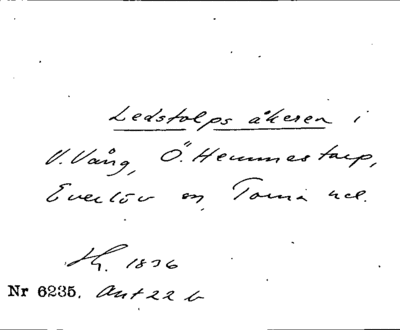 Ledstolps åkeren i
V. Vång, Ö. Hemmestorp,
Everlöv sn, Torna hd.
1836
Nr 6235. Ant 22 b